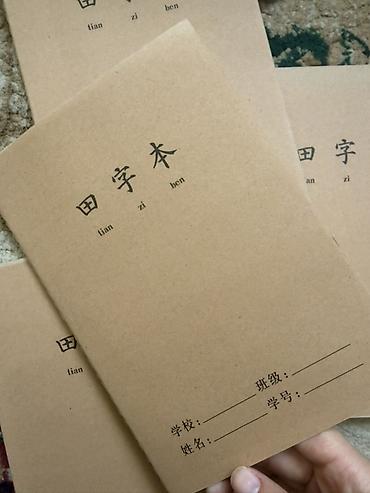 田字
tian zi ben
田字本
tian zi ben
田字
zi
田
tian
学校: 班级:
姓名: 学号: